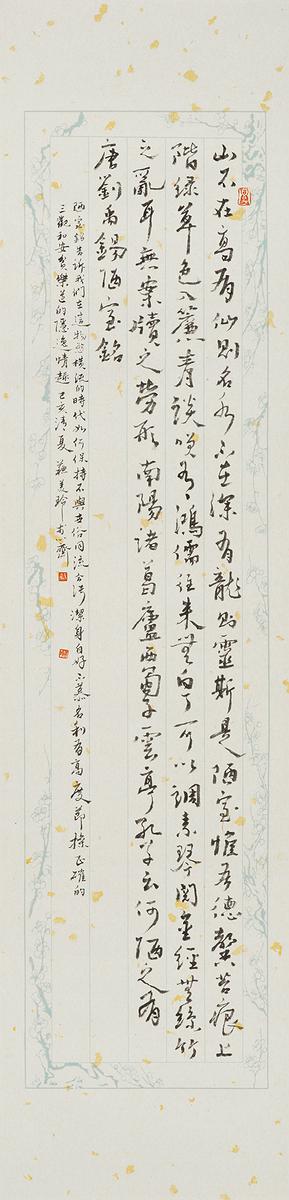 山不在高有仙則名水不在深有龍則靈斯是陋室惟吾德馨苔痕上
階綠草色入簾青談笑有鴻儒往來無白丁可以調素琴閱金經無絲竹
之亂耳無案牘之勞形南陽諸葛廬西蜀子雲亭孔子云何陋之有
唐劉禹錫陋室銘
陋室銘告訴我們在這物慾橫流的時代如何保持不與世俗同流合污潔身自好不慕名利有高度節操正確的
三觀和安貧樂道的隱逸情趣己亥清夏蘇美玲